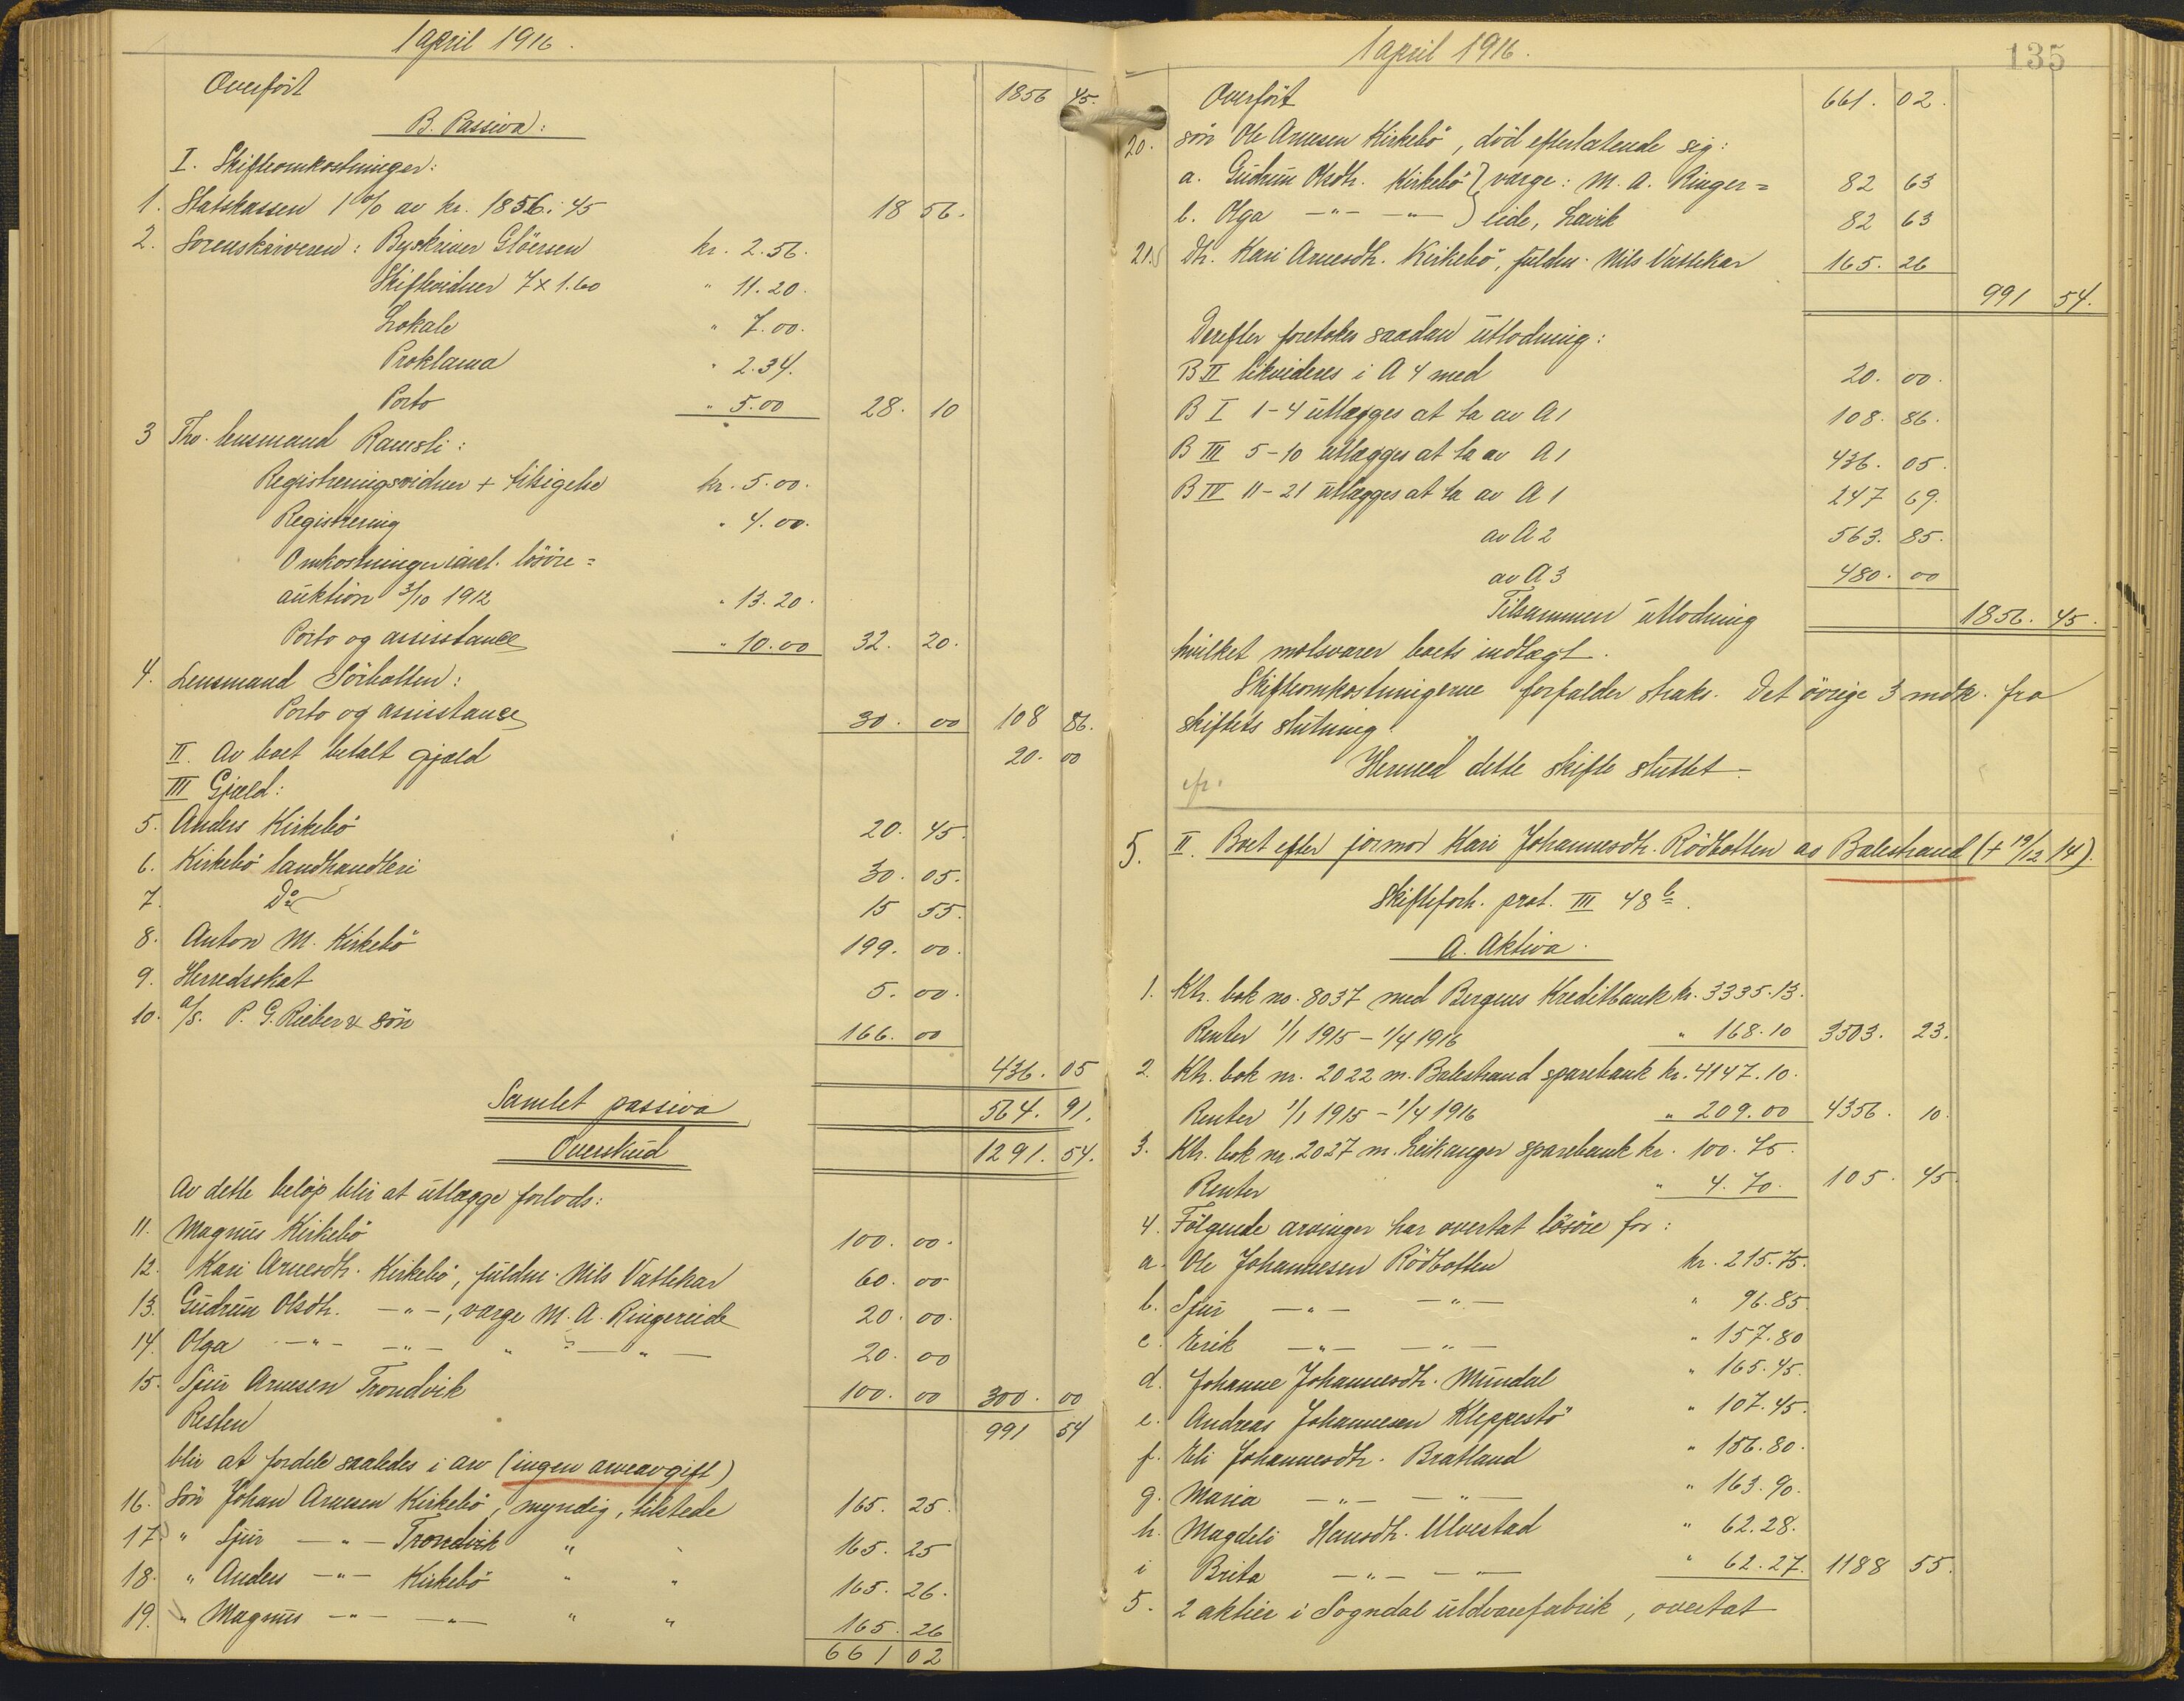 1 april 1916.
Overført 1856 45.
B. Passiva:
I. Skifteomkostninger:
1. Statskassen 1 % av kr. 1856.45 18 56.
2. Sorenskriveren: Byskriver Glöersen kr. 2.56.
Skiftevidner 7 x 1.60 " 11.20.
Lokale " 7.00.
Proklama " 2.34.
Porto " 5.00 28. 10
3 Fhv. lensmand Ramsli:
Registreringsvidner + tilsigelse kr. 5.00.
Registrering " 4.00.
Omkostninger löröre=
auktion 3/10 1912 " 13.20.
Porto og assistance " 10.00 32. 20.
4. Lensmand Sörbotten:
Porto og assistance 30. 00 108 86.
II. Av boet betalt gjæld 20. 00
III Gjæld:
5. Anders Kirkebö 20. 45.
6. Kirkebö landhandleri 30. 05.
7. Do 15 55.
8. Anton M. Kirkebö 199. 00.
9. Herredsskat 5. 00.
10. a/s. P. G. Rieber & Sön 166. 00
436. 05
Samlet passiva 564. 91.
Overskud 1291. 54.
Av dette beløp blir at utlægge forlods:
11. Magnus Kirkebö 100. 00.
12. Kari Arnesdtr. Kirkebö, fuldm. Nils Vattekar 60. 00
13. Gudrun Olsdtr. — " —, værge M. A. Ringereide 20. 00.
14. Olga — " — — " — " — " — 20. 00
15. Sjur Arnesen Trondvik 100. 00 300. 00
Resten 991 54
blir at fordele saaledes i arv (ingen arveavgift)
16. Sön Johan Arnesen Kirkebö, myndig, tilstede 165. 25.
17. " Sjur — " — Trondvik " " 165. 25
18. " Anders — " — Kirkebö " " 165. 26.
19. " Magnus — " — — " — " " 165. 26
661 02
1 april 1916.
135
Overført 661. 02.
20. sön Ole Arnesen Kirkebö, död efterlatende sig:
a. Gudrun Olsdtr. Kirkebö } værge: M. A. Ringer= 82 63
b. Olga — " — — " — } eide, Lavik 82 63
21. Dtr. Kari Arnesdtr. Kirkebö, fuldm. Nils Vattekar 165. 26
991 54.
Derefter foretokes saadan utlodning:
B II likvideres i A 4 med 20. 00.
B I 1-4 utlægges at ta av A 1 108. 86.
B III 5-10 utlægges at ta av A 1 436. 05.
B IV 11-21 utlægges at ta av A 1 247 69.
av A 2 563. 85.
av A 3 480. 00
Tilsammen utlodning 1856. 45.
hvilket motsvarer boets indtægt.
Skifteomkostningerne forfalder straks. Det övrige 3 mdr. fra
skiftets slutning.
Hermed dette skifte sluttet.
cfr.
5. II. Boet efter jormor Kari Johannesdtr. Rödbotten av Balestrand (+ 19/12 14).
Skifteforh. prot. III 48 b.
A. Aktiva.
1. Ktr. bok no. 8037 med Bergens Kreditbank kr. 3335.13.
Renter 1/1 1915 - 1/4 1916 " 168.10 3503. 23.
2. Ktr. bok nr. 2022 m. Balestrand sparebank kr. 4147.10.
Renter 1/1 1915 - 1/4 1916 " 209.00 4356. 10.
3. Ktr. bok nr. 2027 m. Leikanger sparebank kr. 100.75.
Renter " 4.70. 105. 45.
4. Fölgende arvinger har overtat lösöre for:
a. Ole Johannesen Rödbotten kr. 215.75.
b. Sjur — " — — " — " 96.85.
c. Erik — " — — " — " 157.80
d. Johanne Johannesdtr. Mundal " 165.45.
e. Andreas Johannesen Kleppestö " 107.45.
f. Eli Johannesdtr. Bratland " 156.80.
g. Maria — " — — " — " 163.90.
h. Magdeli Hansdtr. Ulvestad " 62.28.
i Brita — " — — " — " 62.27. 1188 55.
5. 2 aktier i Sogndal uldvarefabrik, overtat